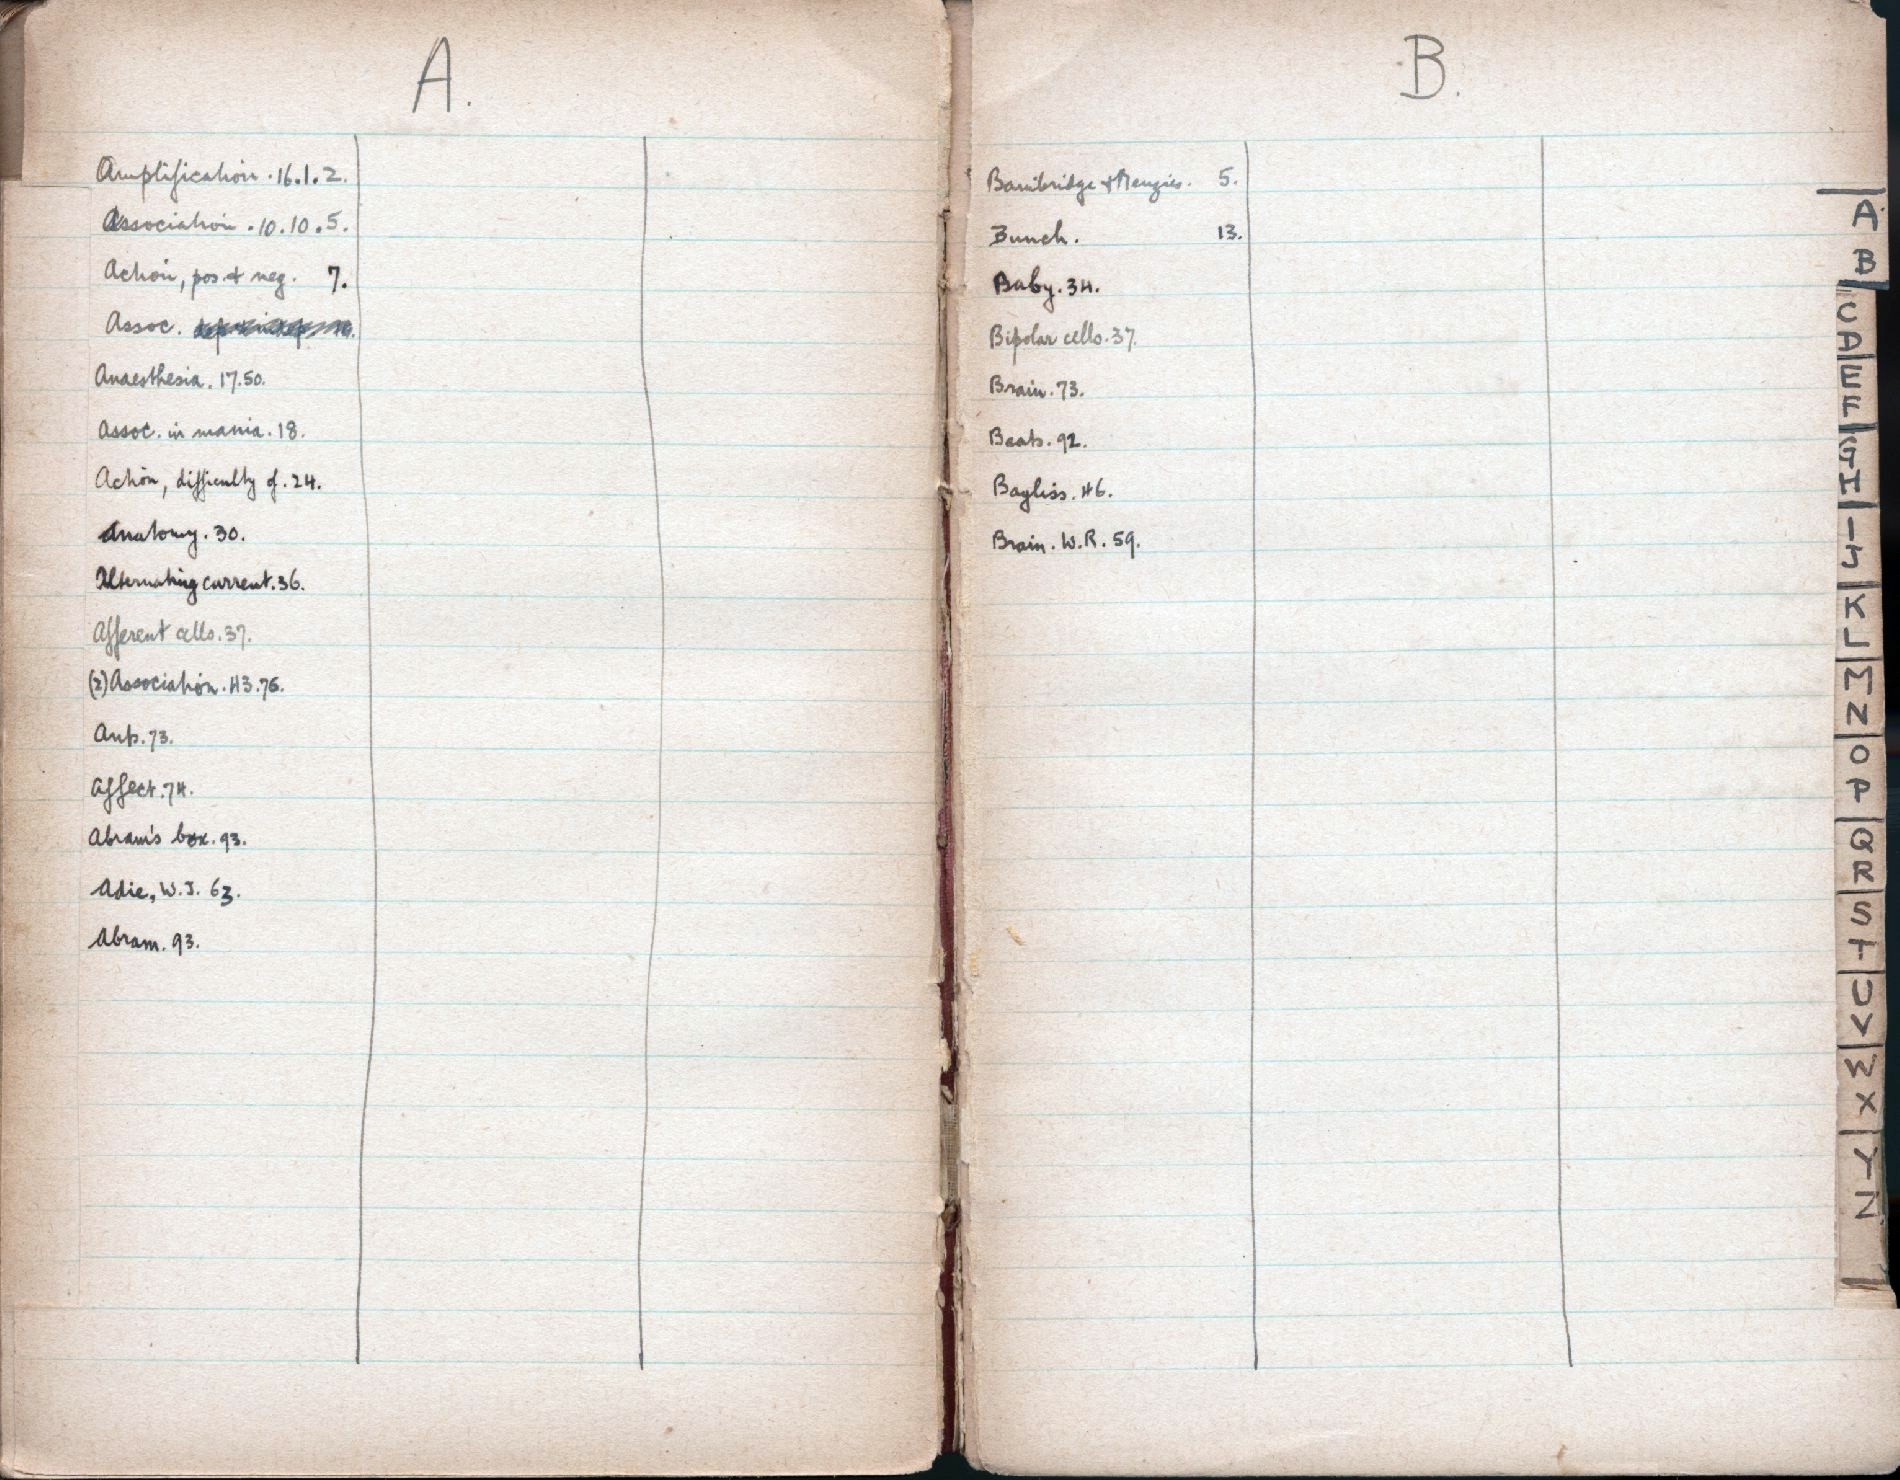 A.
Amplification. 16.1.2.
Association. 10.10.5.
Action, pos. & neg. 7.
Assoc.
Anaesthesia. 17.50.
Assoc. in mania. 18.
Action, difficulty of. 24.
Anatomy. 30.
Alternating current. 36.
Afferent cells. 37.
(2) Association. 43.76.
Ants. 73.
Affect. 74.
Abram's box. 93.
Adie, W.J. 63.
Abram. 93.
B.
Bainbridge & Menzies. 5.
Bunch. 13.
Baby. 34.
Bipolar cells. 37.
Brain. 73.
Beats. 92.
Bayliss. 46.
Brain. W.R. 59.
A
B
C
D
E
F
G
H
I
J
K
L
M
N
O
P
Q
R
S
T
U
V
W
X
Y
Z